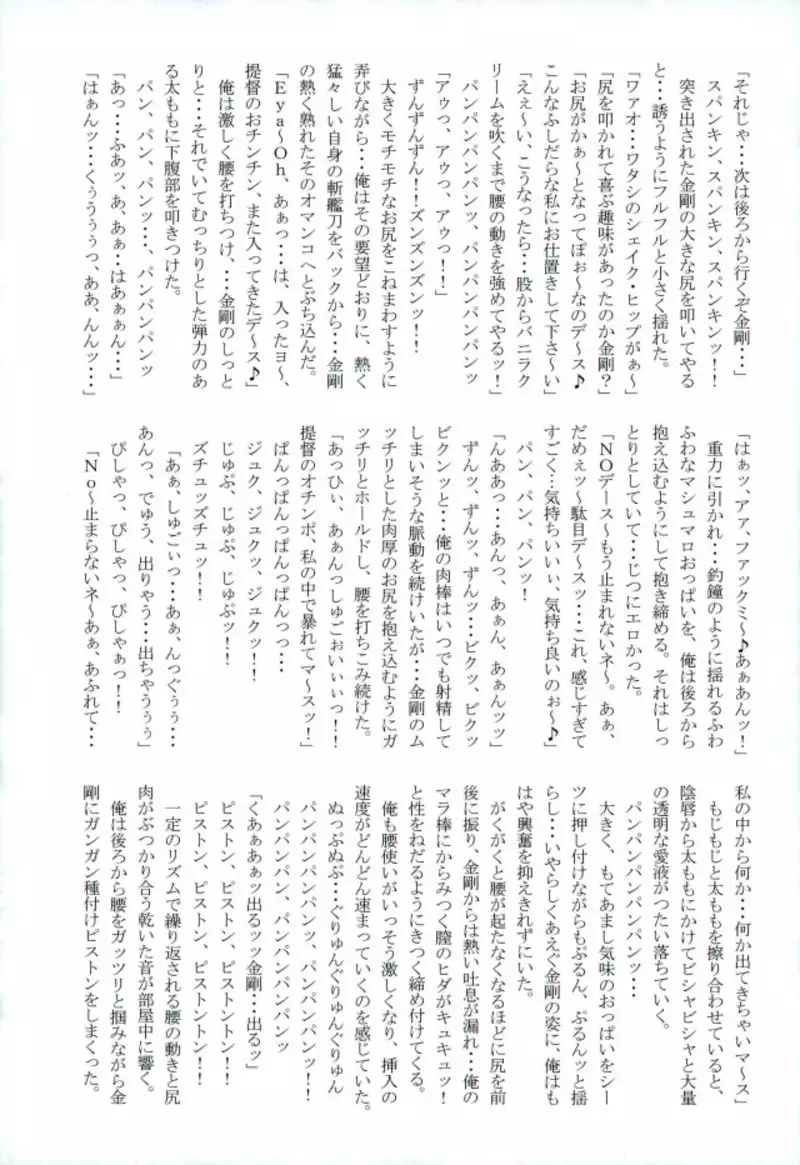 「それじゃ・・・次は後ろから行くぞ金剛・・・」
スパンキン、スパンキン、スパンキンッ！！
突き出された金剛の大きな尻を叩いてやる
と・・・誘うようにフルフルと小さく揺れた。
「ワァオ・・・ワタシのシェイク・ヒップがぁ～」
「尻を叩かれて喜ぶ趣味があったのか金剛？」
「お尻がかぁ～となってぽぉ～なのデ～ス♪
こんなふしだらな私にお仕置きして下さ～い」
「えぇ～い、こうなったら・・・股からバニラク
リームを吹くまで腰の動きを強めてやるッ！」
パンパンパンパンッ、パンパンパンパンッ
「アゥっ、アゥっ、アゥっ！！」
ずんずんずん！！ズンズンズンッ！！
大きくモチモチなお尻をこねまわすように
弄びながら・・・俺はその要望どおりに、熱く
猛々しい自身の斬艦刀をバックから・・・金剛
の熱く熟れたそのオマンコへとぶち込んだ。
「Eya～Oh、あぁっ・・・は、入ったヨ～、
提督のおチンチン、また入ってきたデ～ス♪」
俺は激しく腰を打ちつけ、・・・金剛のしっと
りと・・・それでいてむっちりとした弾力のあ
る太ももに下腹部を叩きつけた。
パン、パン、パンッ・・・、パンパンパンッ
「あっ・・・ふあッ、あ、あぁ・・はあぁぁん・・・」
「はぁんッ・・・くぅうぅぅっ、ああ、んんッ・・・」
「はぁッ、アァ、ファックミ～♪あぁあんッ！」
重力に引かれ・・・釣鐘のように揺れるふわ
ふわなマシュマロおっぱいを、俺は後ろから
抱え込むようにして抱き締める。それはしっ
とりとしていて・・・じつにエロかった。
「NOデース～もう止まれないネ～。あぁ、
だめぇッ～駄目デ～スッ・・・これ、感じすぎて
すごく・・・気持ちいいぃ、気持ち良いのぉ～♪」
パン、パン、パンッ！
「んああっ・・・あんっ、あぁん、あぁんッッ」
ずんッ、ずんッ、ずんッ・・・ビクッ、ビクッ
ビクンッと・・・俺の肉棒はいつでも射精して
しまいそうな脈動を続けいたが・・・金剛のム
ッチリとした肉厚のお尻を抱え込むようにガ
ッチリとホールドし、腰を打ちこみ続けた。
「あっひぃ、あぁんっしゅごぉいぃぃっ！！
提督のオチンポ、私の中で暴れてマ～スッ！」
ぱんっぱんっぱんっぱんっっ・・・
ジュク、ジュクッ、ジュクッ！！
じゅぷ、じゅぷ、じゅぷッ！！
ズチュッズチュッ！！
「あぁ、しゅごぃっ・・・あぁ、んっぐぅぅ・・・
あんっ、でゅう、出りゃう・・・出ちゃうぅぅ」
ぴしゃっ、ぴしゃっ、ぴしゃぁっ！！
「No～止まらないネ～あぁ、あふれて・・・
私の中から何か・・・何か出てきちゃいマ～ス」
もじもじと太ももを擦り合わせていると、
陰唇から太ももにかけてビシャビシャと大量
の透明な愛液がつたい落ちていく。
パンパンパンパンパンッ・・・
大きく、もてあまし気味のおっぱいをシー
ツに押し付けながらもぷるん、ぷるんッと揺
らし・・・いやらしくあえぐ金剛の姿に、俺はも
はや興奮を抑えきれずにいた。
がくがくと腰が起たなくなるほどに尻を前
後に振り、金剛からは熱い吐息が漏れ・・・俺の
マラ棒にからみつく膣のヒダがキュキュッ！
と性をねだるようにきつく締め付けてくる。
俺も腰使いがいっそう激しくなり、挿入の
速度がどんどん速まっていくのを感じていた。
ぬっぷぬぷ・・・ぐりゅんぐりゅんぐりゅん
パンパンパンパンッ、パンパンパンッ！！
パンパンパンパン、パンパンパンパンッ
「くあぁあぁッ出るッッ金剛・・・出るッ」
ピストン、ピストン、ピストントン！！
ピストン、ピストン、ピストントン！！
一定のリズムで繰り返される腰の動きと尻
肉がぶつかり合う乾いた音が部屋中に響く。
俺は後ろから腰をガッツリと掴みながら金
剛にガンガン種付けピストンをしまくった。